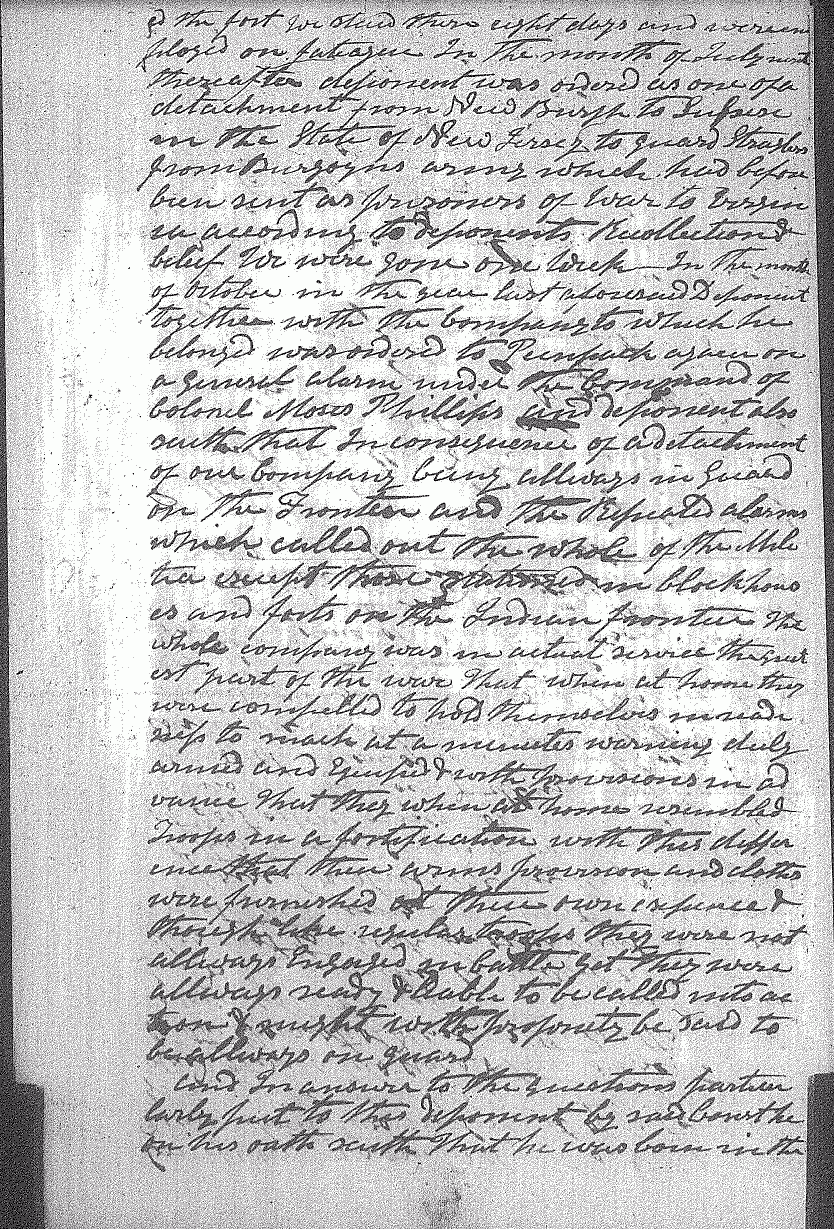 ed the fort We staid there eight days and were em
ployed on fatague In the month of July next
thereafter deponent was ordered as one of a
detachment from New Burgh to Sussex
in the State of New Jersey to guard Straglers
from Burgoyns army which had before
been sent as prizoners of War to Virgin
ia according to deponents Recollection &
belief We were gone one Week In the month
of October in the year last aforesaid Deponent
together with the Company to which he
belonged was ordered to Peenpack again on
a general alarm under the Command of
Colonel Moses Phillips and deponent also
saith that In consequence of a detachment
of our Company being allways in Guard
on the Frontier and the Repeated alarms
which called out the whole of the Mili
tia except those stationed in block hous
es and forts on the Indian frontier The
whole company was in actual service the great
est part of the war That when at home they
were compelled to hold themselves in readi
ness to march at a minutes warning duly
armed and Equiped & with provisions in ad
vance That they when at home resembled
Troops in a fortification with this differ
ence that their arms provision and clothes
were furnished at their own expence &
though like regular troops they were not
allways Engaged in battle yet they were
allways ready & liable to be called into ac
tion & might with propriety be said to
be allways on guard
and In answer to the questions particu
larly put to this deponent by said Court he
on his oath saith That he was born in the